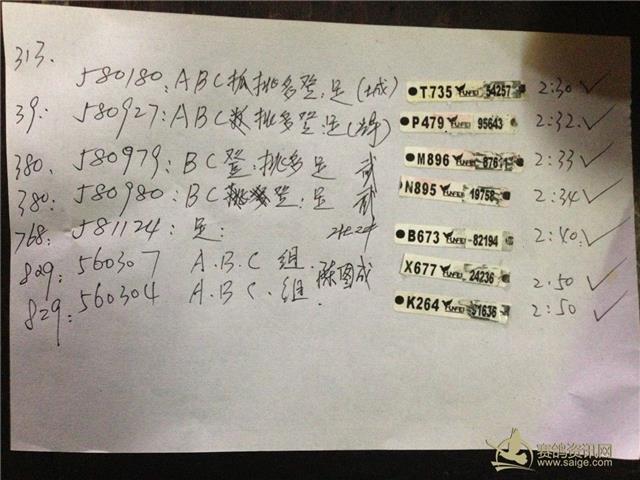 313. 580180: ABC 排多登: 足 (城) T735 YUNFEI 54257 2:30 ✓
39: 580927: ABC 排多登: 足 P479 YUNFEI 95643 2:32 ✓
380. 580979: BC 登: 排多足 武 M896 YUNFEI 2:33 ✓
380: 580980: BC 登: 足 武 N895 19758 2:34 ✓
768: 581124: 足: B673 YUNFEI 82194 2:40 ✓
829: 560307 A.B.C 组. 陈图成 X677 YUNFEI 24236 2:50 ✓
829: 560304 A.B.C. 组. K264 YUNFEI 91636 2:50 ✓
赛鸽资讯网
www.saige.com